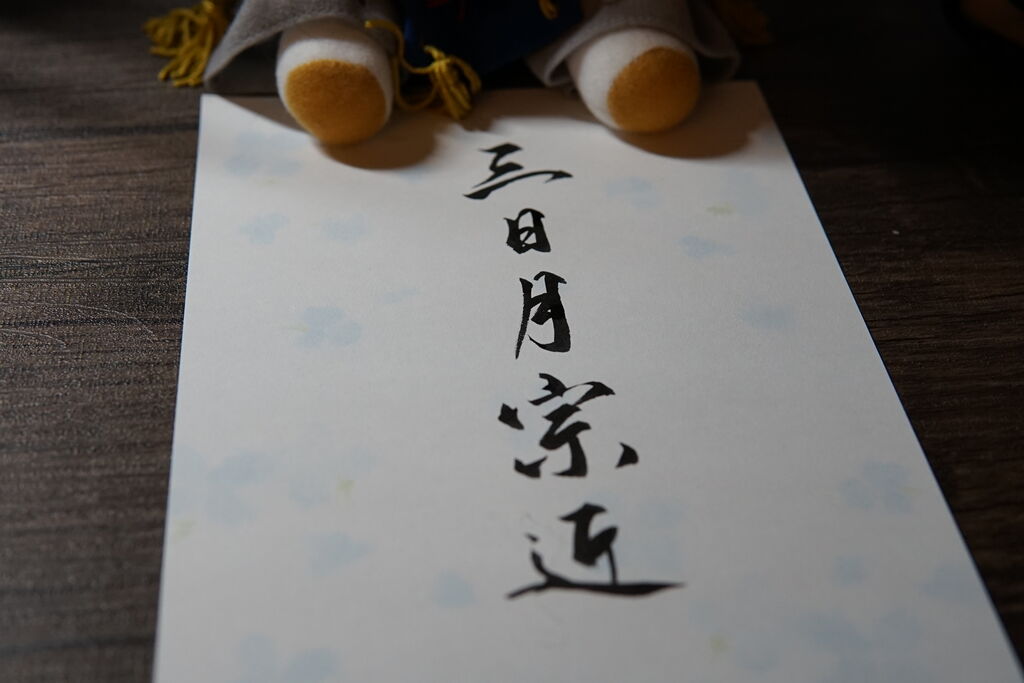 三日月宗近